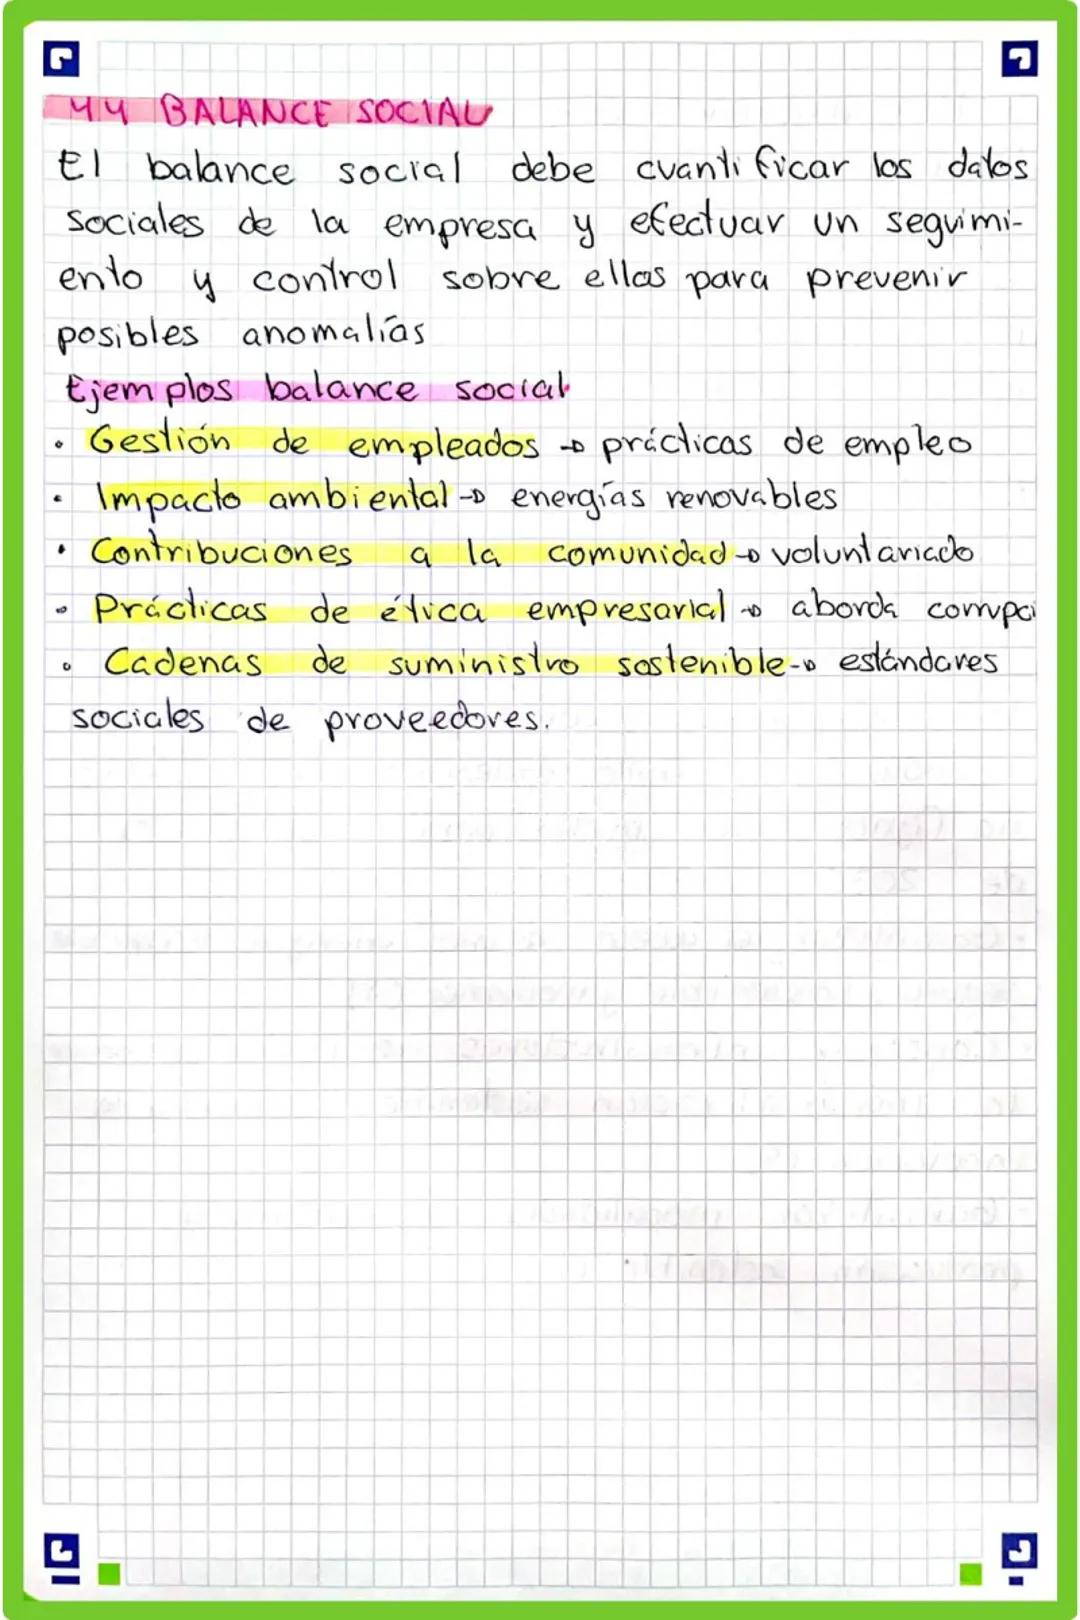 4.4 BALANCE SOCIAL
El balance social debe cuantificar los datos
sociales de la empresa y efectuar un seguimi-
ento y control sobre ellos para prevenir
posibles anomalías
Ejemplos balance social
• Gestión de empleados → prácticas de empleo
• Impacto ambiental → energías renovables
• Contribuciones a la comunidad → voluntariado
• Prácticas de ética empresarial → aborda
• Cadenas de suministro sostenible → estándares
sociales de proveedores.